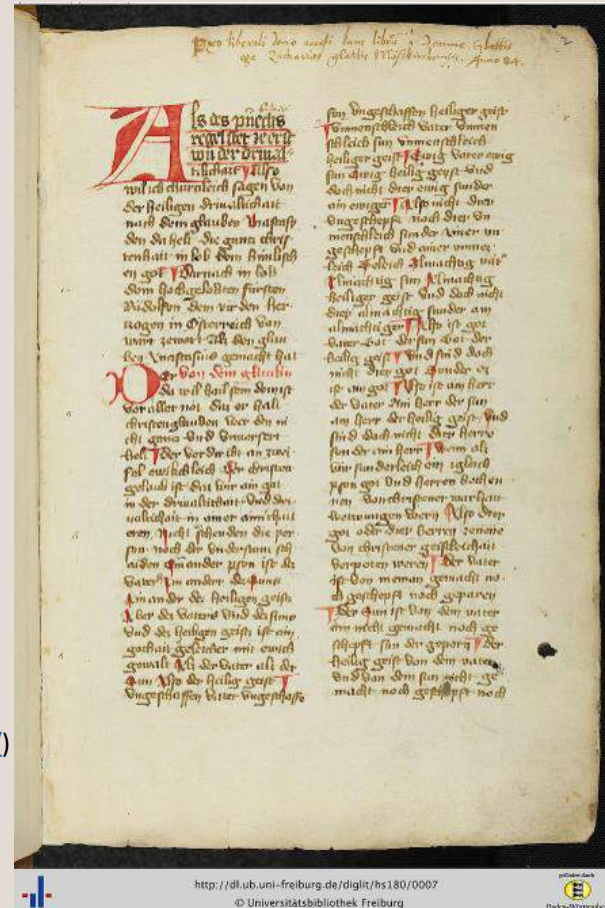 Pro liberali dono accepi hunc librum à Domino Glattis
ego Zacharias Glattis Anno 84.
2
Als des
regel
von der drival
tikchait Also
wil ich churczleich sagen von
der heiligen drivaltichait
nach dem glauben Anastasy
den da helt die gancz chris
tenhait in lob dem himlisch
en got Darnach in lob
dem hochgelobten fürsten
Rudolfen dem vierden her
czogen in Österreich von
wann zewort Als den glau
ben Anastasius gemacht hat
Von dem glauben
Der da wil hail sein dem ist
vor aller not das er halt
christenglauben wer den ni
cht gancz vnd vnuersert
helt der verdirbt an zwei
fel ewikchleich Der christen
gelaub ist das wir ain got
in der drivaltichait vnd dri
ualtichait in ainer ainichait
eren Nicht schenden die per
son noch die vnderstanng sch
aiden Ein ander person ist der
vater Ein ander der sunn
Ein ander der heilig geist
Aber des vaters vnd des suns
vnd des heiligen geists ist ein
gothait geleicher mit ewich
gewalt Als der vater als der
sun Also der heilig geist
Vngeschaffen vater vngeschaffe
sun vngeschaffen heiliger geist
Vnmenschleich vater vnmen
schleich sun vnmenschleich
heiliger geist Ewig vater ewig
sun Ewig heilig geist vnd
doch nicht drei ewig sunder
ain ewiger Also nicht drei
vngeschepft noch drei vn
menschleich sunder ainer vn
geschepft vnd ainer vnmen
leich Geleich Almachtig vater
Almachtig sun Almachtig
heiliger geist vnd doch nicht
drey almachtig sunder ain
almachtiger Also ist got
vater Got der sun Got der
heilig geist Vnd sind doch
nicht drei got Sunder es
ist ain got Also ist ain herr
der vater Ain herr der sun
ain herr der heilig geist Vnd
sind doch nicht drey herren
sunder ain herr Wann als
wir sunderleich ein igleich
person got vnd herren bechen
nen von christener warhait
betwungen wern Also drey
got oder drei herren zenenne
von christener geistleichait
verpoten weren Der vater
ist von nieman gemacht no
ch geschepft noch geparen
Der sun ist von dem vater
ein nicht gemacht noch ge
schepft sun der geporn Der
heilig geist von dem vater
vnd von dem sun nicht ge
macht noch geschepft noch
)
http://dl.ub.uni-freiburg.de/diglit/hs180/0007
© Universitätsbibliothek Freiburg
gefördert durch
Baden-Württemberg